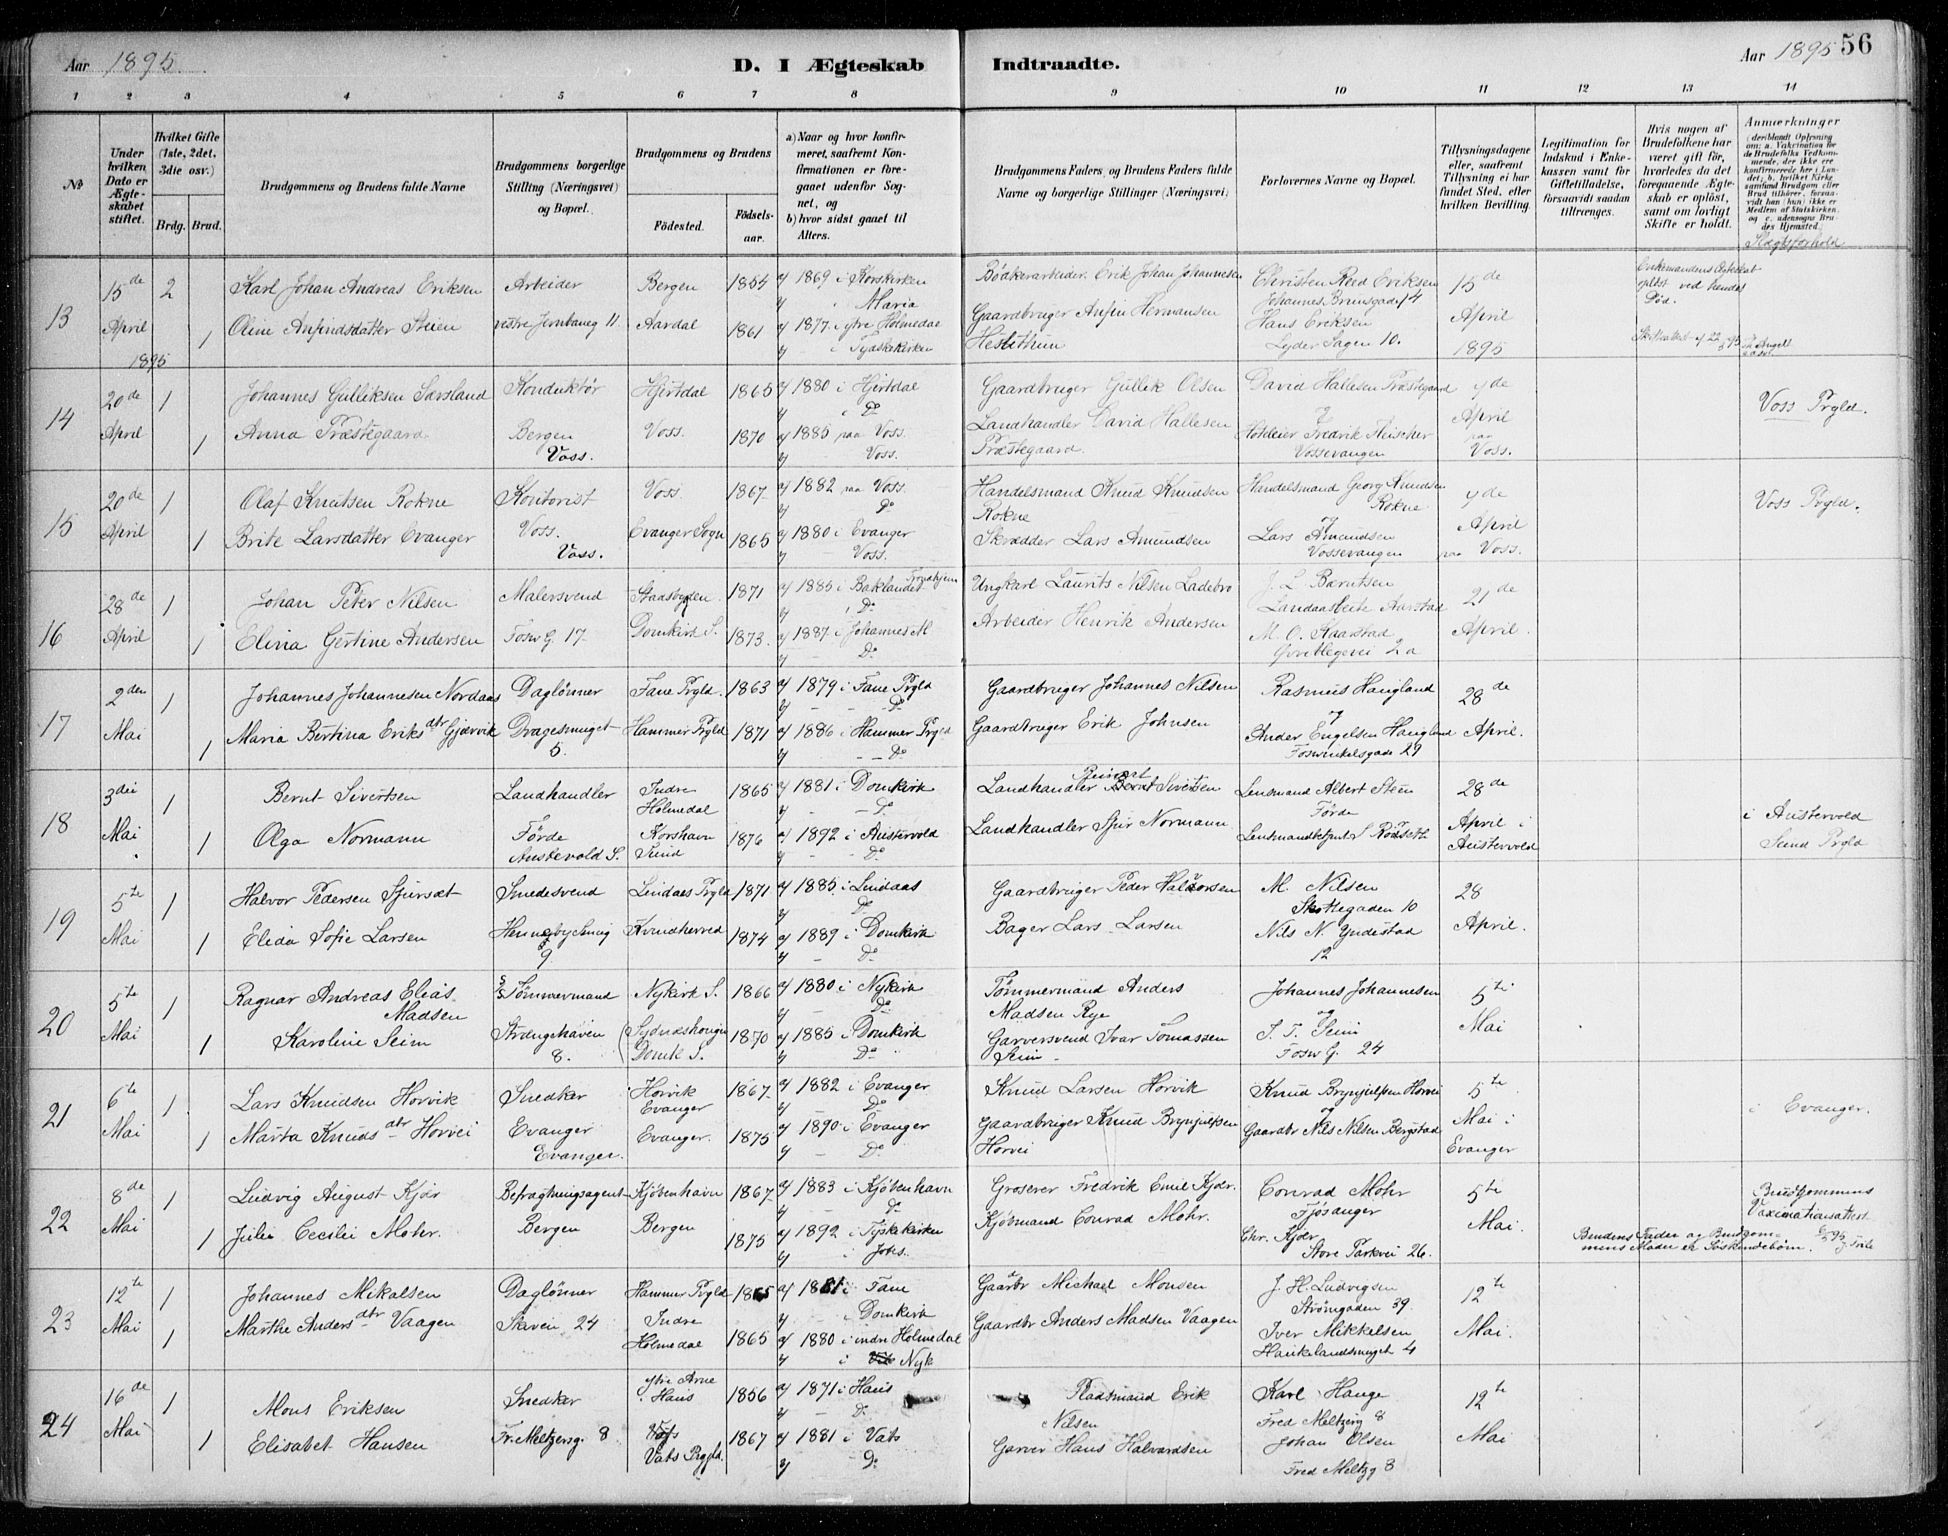 Aar 1895.
D. I Ægteskab Indtraadte.
Aar 1895 56
1 2 3 4 5 6 7 8 9 10 11 12 13 14
No
Under hvilken Dato er Ægteskabet stiftet.
Hvilket Gifte (1ste, 2det, 3die osv.)
Brdg. Brud.
Brudgommens og Brudens fulde Navne
Brudgommens borgerlige Stilling (Næringsvei) og Bopæl.
Brudgommens og Brudens
Födested. Födselsaar.
a) Naar og hvor konfirmeret, saafremt Konfirmationen er foregaaet udenfor Sognet, og
b) hvor sidst gaaet til Alters.
Brudgommens Faders, og Brudens Faders fulde Navne og borgerlige Stillinger (Næringsvei)
Forlovernes Navne og Bopæl.
Tillysningsdagene eller, saafremt Tillysning ei har fundet Sted, efter hvilken Bevilling.
Legitimation for Indskud i Enkekassen samt for Giftetilladelse, forsaavidt saadan tiltrænges.
Hvis nogen af Brudefolkene har været gift för, hvorledes da det foregaaende Ægteskab er oplöst, samt om lovligt Skifte er holdt.
Anmærkninger
(deriblandt Oplysning om: a. Vakcination for de Brudefolks Vedkommende, der ikke ere konfirmerede her i Landet; b. hvilket Kirkesamfund Brudgom eller Brud tilhörer, forsaavidt han (hun) ikke er Medlem af Statskirken, og c. udensogns Brudes Hjemsted.
Slægtsforhold
13 15de April 1895 2 Karl Johan Andreas Eriksen Arbeider Bergen 1854 a) 1869 i Korskirken b) Maria Bödkerarbeider Erik Johan Johannesen Christen Reed Eriksen Johannes Brunsgade 14 15de April 1895 Enkemandens Ægteskab oplöst ved hendes Död.
1 Oline Anfindsdatter Steien vestre Jernbaneg 11. Aardal 1861 a) 1877 i ytre Holmedal b) - i Tydskekirken Gaardbruger Anfin Hermansen Hestethun Hans Eriksen Lyder Sagen 10. Skifteattest af 22/3 95
14 20de April 1 Johannes Gulliksen Sarsland Konduktör Hjertdal 1865 a) 1880 i Hjertdal b) i Do Gaardbruger Gullik Olsen David Hallesen Præstegaard 7de April paa Voss. Voss Prgld.
1 Anna Præstegaard. Bergen Voss. Voss. 1870 a) 1885 paa Voss. b) Voss. Landhandler David Hallesen Præstegaard. og Hoteleier Fredrik Fleischer Vossevangen
15 20de April 1 Olaf Knutsen Rokne Kontorist Voss 1867 a) 1882 paa Voss. b) Do Handelsmand Knud Knudsen Rokne Handelsmand Georg Knudsen Rokne 7de April paa Voss. Voss Prgld.
1 Brite Larsdatter Evanger Voss. Voss. Evanger Sogn 1865 a) 1880 i Evanger b) - Voss. Skrædder Lars Amundsen og Lars Amundsen Vossevangen
16 28de April 1 Johan Peter Nilsen Malersvend Stadsbygden 1871 a) 1885 i Baklandet Trondhjem b) i Do Ungkarl Laurits Nilsen Ladebro J. L. Berntsen Landaasleite Aarstad 21de April.
1 Elina Gertine Andersen Fosw G. 17. Domkirk S. 1873. a) 1887. i Johannes M b) - Do Arbeider Henrik Andersen M. O. Kaarstad 2a
17 2den Mai 1 Johannes Johannesen Nordaas Daglönner Fane Prgld. 1863 a) 1879 i Fane Prgld b) - - Do Gaardbruger Johannes Nilsen Rasmus Haugland 28de April.
1 Maria Bertina Eriksdtr Gjervik Dragesmuget 5. Hammer Prgld 1871 a) 1886 i Hammer Prgld b) - - Do Gaardbruger Erik Johnsen og Ander Engelsen Haugland Foswinkelsgade 27
18 3die Mai. 1 Bernt Sivertsen Landhandler Indre Holmedal 1865 a) 1881 i Domkirk b) - - Do Landhandler Bernt Sivertsen Lensmand Albert Steen Förde 28de April i Austevold i Austervold Sund Prgld
1 Olga Normann Förde Austevold S. Korshavn Sund 1876 a) 1892 i Austervold b) - - Do Landhandler Sjur Normann
19 5te Mai 1 Halvor Pedersen Sjursæt Smedesvend Lindaas Prgld 1871 a) 1885. i Lindaas b) Do Gaardbruger Peder Halvorsen M. Nilsen Skottegaden 10 28 April.
1 Elida Sofie Larsen 9. Kvindherred 1874 a) 1889 i Domkirk b) - Do Bager Lars Larsen Nils N. Yndestad 12
20 5te Mai 1 Ragnar Andreas Elias Madsen Tömmermand Nykirk S. 1866 a) 1880 i Nykirk b) - Do Tömmermand Anders Madsen Rye Johannes Johannesen 5te Mai
1 Karoline Seim Strangehaven 8. Sydnæshaugen Domk S. 1870 a) 1885 i Domkirk b) Do Garversvend Ivar Tomassen Seim og S. T. Seim Fosw G. 24
21 6te Mai 1 Lars Knudsen Horvik Snedker Horvik Evanger 1867. a) 1882 i Evanger b) Do Knud Larsen Horvik Knud Brynjulfsen Horvei 5te Mai i Evanger i Evanger.
1 Marta Knudsdtr Horvei Evanger Evanger. Evanger. 1875 a) 1890 i Evanger b) - Do Gaardbruger Knud Brynjulfsen Horvei og Gaardbr Nils Nilsen Bergstad
22 8de Mai 1 Ludvig August Kjær Befragtningsagent Kjöbenhavn 1867 a) 1883 i Kjöbenhavn b) - Do Grosserer Fredrik Emil Kjær. Conrad Mohr Fjösanger 5te Mai. Brudgommens Vaxinationsattest
1 Julie Cecilie Mohr. Bergen Bergen 1875 a) 1892 i Tyskekirken b) i Johs. Kjöbmand Conrad Mohr. Chr. Kjær Store Parkvei 26. Brudens Fader og Brudgommens Moder er Söskendebörn.
23 12te Mai 1 Johannes Mikalsen Daglönner Hammer Prgld 1865 a) 1881 i Fane b) - Domkirk Gaardbr Michael Monsen J. H. Ludvigsen Strömgaden 39 12te Mai.
1 Marthe Andersdtr Vaagen Skiven 24 Indre Holmedal 1865 a) 1880 i indre Holmedal b) i Nyk Gaardbr Anders Madsen Vaagen Iver Mikkelsen Haukelandsmuget 4
24 16de Mai 1 Mons Eriksen Snedker ytre Arne Haus 1856 a) 1871 i Haus b) - Do Pladsmand Erik Nilsen Karl Hauge Fred Meltzerg 8 12te Mai
1 Elisabet Hansen Fr. Meltzersg. 8 Vats Prgld. 1867 a) 1881 i Vats b) - Do Garver Hans Halvardsen Johan Olsen Fred Meltzg 8